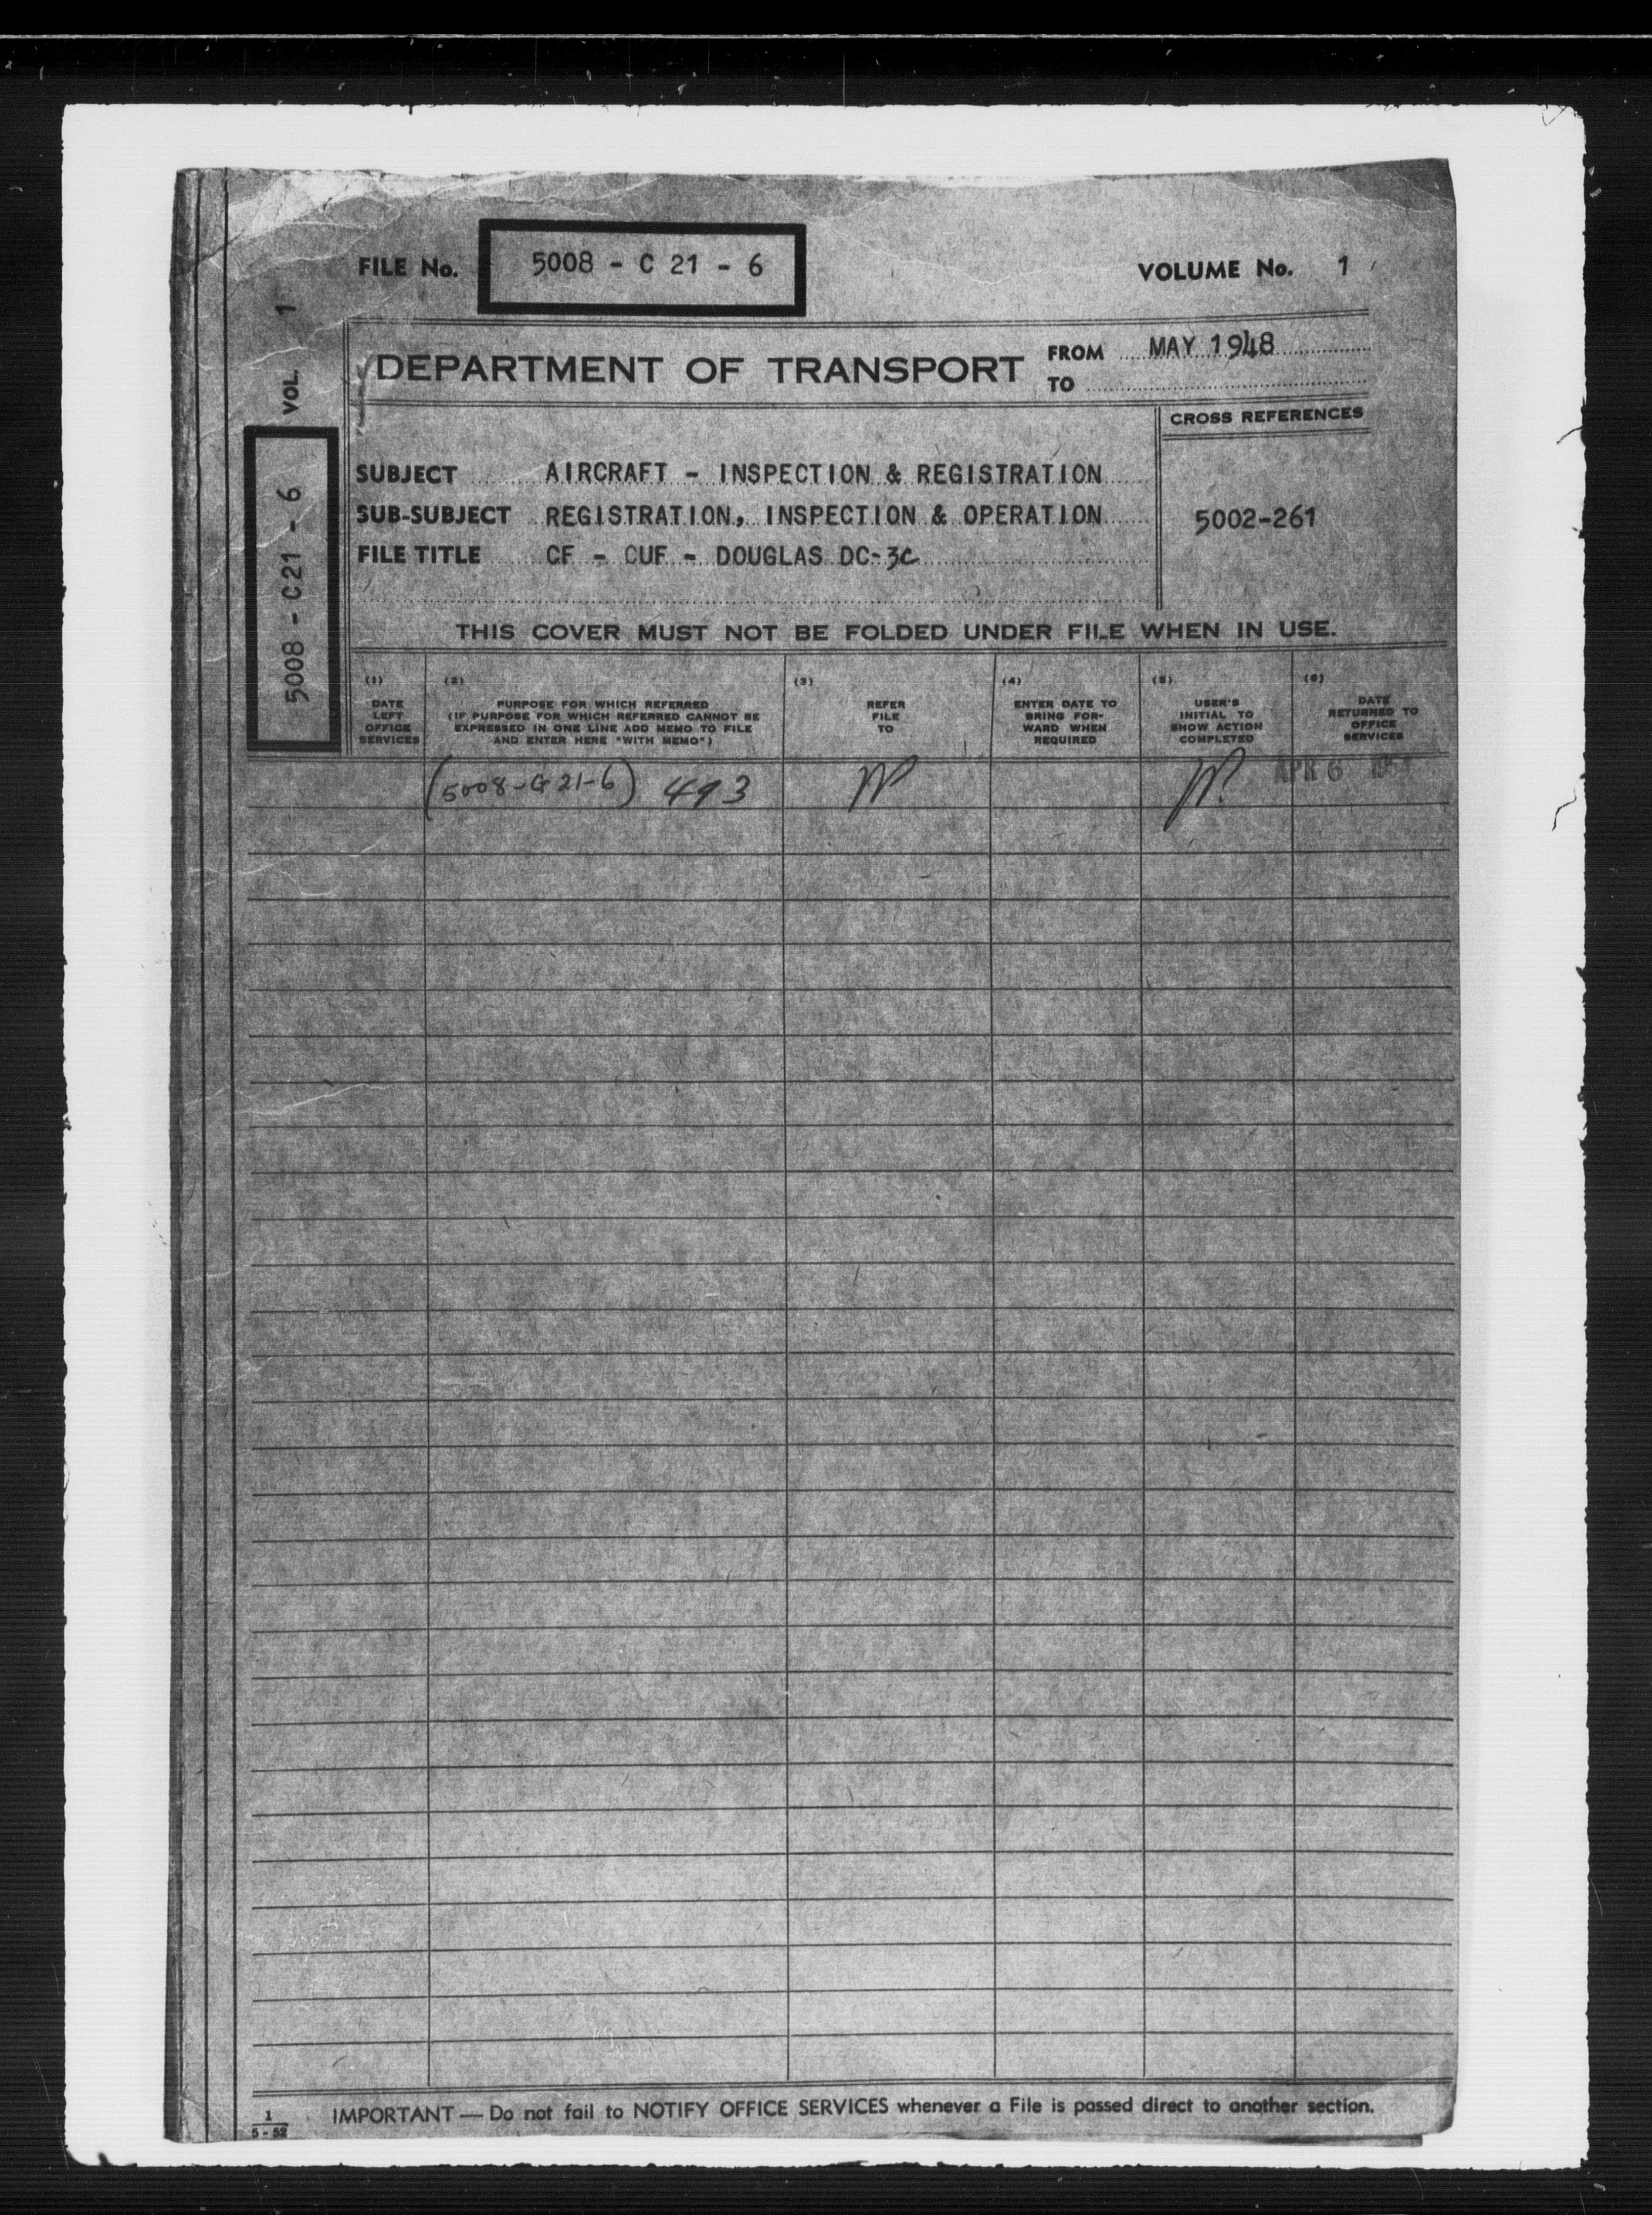 FILE No. 5008 - C 21 - 6
VOLUME No. 1
DEPARTMENT OF TRANSPORT
FROM MAY 1948
TO
CROSS REFERENCES
5002-261
SUBJECT AIRCRAFT - INSPECTION & REGISTRATION
SUB-SUBJECT REGISTRATION, INSPECTION & OPERATION
FILE TITLE CF - CUF - DOUGLAS DC-3C
5008 - C21 - 6 VOL. 1
THIS COVER MUST NOT BE FOLDED UNDER FILE WHEN IN USE.
(1)
DATE
LEFT
OFFICE
SERVICES
(2)
PURPOSE FOR WHICH REFERRED
(IF PURPOSE FOR WHICH REFERRED CANNOT BE
EXPRESSED IN ONE LINE ADD MEMO TO FILE
AND ENTER HERE "WITH MEMO")
(3)
REFER
FILE
TO
(4)
ENTER DATE TO
BRING FOR-
WARD WHEN
REQUIRED
(5)
USER'S
INITIAL TO
SHOW ACTION
COMPLETED
(6)
DATE
RETURNED TO
OFFICE
SERVICES
(5008-G21-6) 493
APR 6
IMPORTANT — Do not fail to NOTIFY OFFICE SERVICES whenever a File is passed direct to another section.
1
5-52